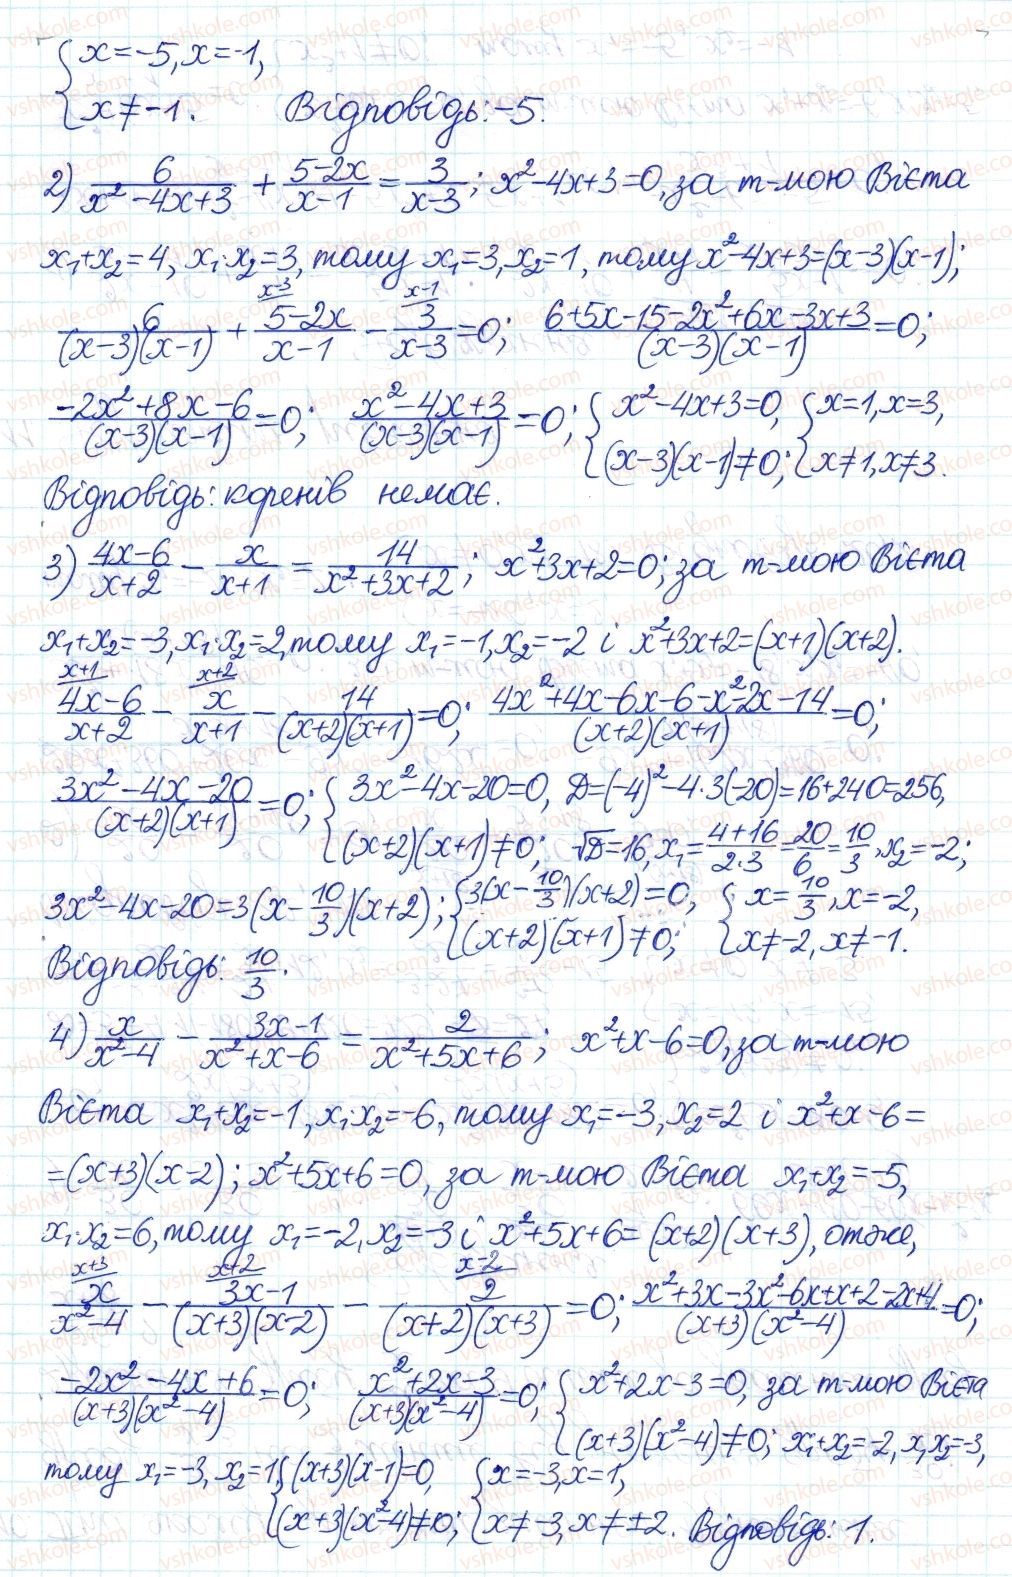 { x=-5, x=-1,
{ x≠-1. Відповідь: -5.
2) 6/(x²-4x+3) + (5-2x)/(x-1) = 3/(x-3); x²-4x+3=0, за т-мою Вієта
x₁+x₂=4, x₁·x₂=3, тому x₁=3, x₂=1, тому x²-4x+3=(x-3)(x-1);
6/((x-3)(x-1)) + (5-2x)/(x-1) [x-3] - 3/(x-3) [x-1] =0; (6+5x-15-2x²+6x-3x+3)/((x-3)(x-1))=0;
(-2x²+8x-6)/((x-3)(x-1))=0; (x²-4x+3)/((x-3)(x-1))=0; { x²-4x+3=0, { x=1, x=3,
{ (x-3)(x-1)≠0; { x≠1, x≠3.
Відповідь: коренів немає.
3) (4x-6)/(x+2) - x/(x+1) = 14/(x²+3x+2); x²+3x+2=0; за т-мою Вієта
x₁+x₂=-3, x₁·x₂=2, тому x₁=-1, x₂=-2 і x²+3x+2=(x+1)(x+2).
(4x-6)/(x+2) [x+1] - x/(x+1) [x+2] - 14/((x+2)(x+1))=0; (4x²+4x-6x-6-x²-2x-14)/((x+2)(x+1))=0;
(3x²-4x-20)/((x+2)(x+1))=0; { 3x²-4x-20=0, D=(-4)²-4·3(-20)=16+240=256,
{ (x+2)(x+1)≠0; √D=16, x₁=(4+16)/(2·3)=20/6=10/3, x₂=-2;
3x²-4x-20=3(x-10/3)(x+2); { 3(x-10/3)(x+2)=0, { x=10/3, x=-2,
{ (x+2)(x+1)≠0; { x≠-2, x≠-1.
Відповідь: 10/3.
4) x/(x²-4) - (3x-1)/(x²+x-6) = 2/(x²+5x+6); x²+x-6=0, за т-мою
Вієта x₁+x₂=-1, x₁·x₂=-6, тому x₁=-3, x₂=2 і x²+x-6=
=(x+3)(x-2); x²+5x+6=0, за т-мою Вієта x₁+x₂=-5,
x₁·x₂=6, тому x₁=-2, x₂=-3 і x²+5x+6=(x+2)(x+3), отже,
x/(x²-4) [x+3] - (3x-1)/((x+3)(x-2)) [x+2] - 2/((x+2)(x+3)) [x-2] =0; (x²+3x-3x²-6x+x+2-2x+4)/((x+3)(x²-4))=0;
(-2x²-4x+6)/((x+3)(x²-4))=0; (x²+2x-3)/((x+3)(x²-4))=0; { x²+2x-3=0, за т-мою Вієта
{ (x+3)(x²-4)≠0; x₁+x₂=-2, x₁x₂=-3,
тому x₁=-3, x₂=1 { (x+3)(x-1)=0, { x=-3, x=1,
{ (x+3)(x²-4)≠0; { x≠-3, x≠±2. Відповідь: 1.